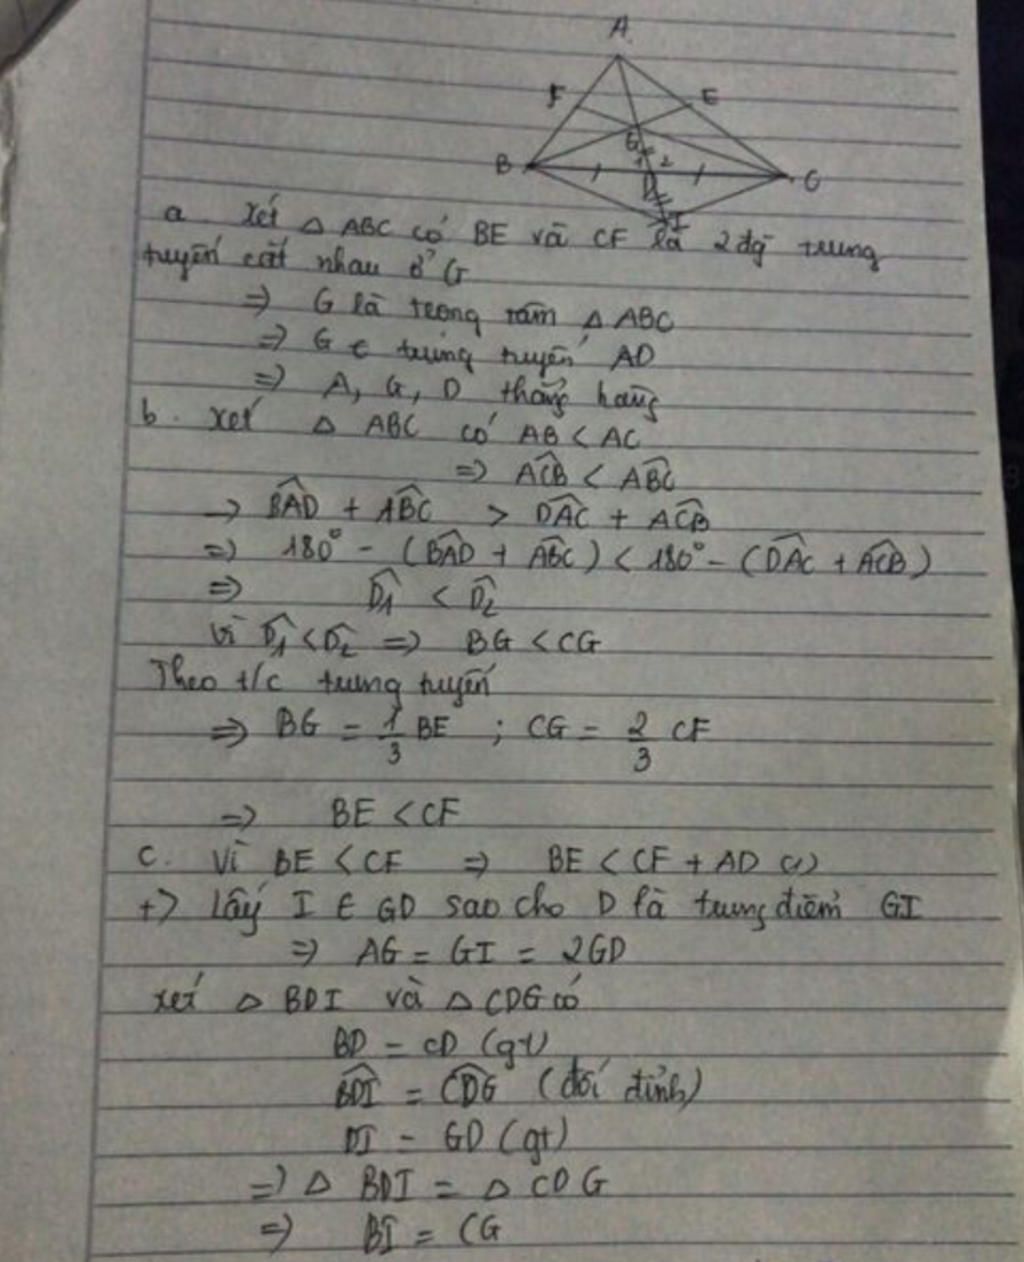 A
F
E
G
B
1 2
C
D
I
a. xét △ ABC có BE và CF là 2 đg trung
tuyến cắt nhau ở G
=> G là trọng tâm △ ABC
=> G ∈ trung tuyến AD
=> A, G, D thẳng hàng
b. xét △ ABC có AB < AC
=> \widehat{ACB} < \widehat{ABC}
-> \widehat{BAD} + \widehat{ABC} > \widehat{DAC} + \widehat{ACB}
=> 180° - (\widehat{BAD} + \widehat{ABC}) < 180° - (\widehat{DAC} + \widehat{ACB})
=> \widehat{D_1} < \widehat{D_2}
Vì \widehat{D_1} < \widehat{D_2} => BG < CG
Theo t/c trung tuyến
=> BG = \frac{1}{3} BE ; CG = \frac{2}{3} CF
=> BE < CF
c. Vì BE < CF => BE < CF + AD (1)
+> Lấy I ∈ GD sao cho D là trung điểm GI
=> AG = GI = 2GD
xét △ BDI và △ CDG có
BD = CD (gt)
\widehat{BDI} = \widehat{CDG} (đối đỉnh)
DI = GD (gt)
=> △ BDI = △ CDG
=> BI = CG